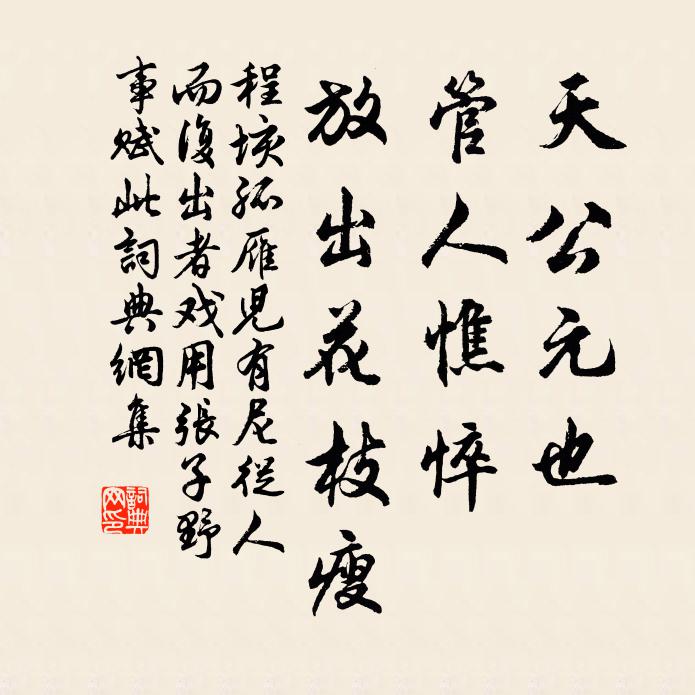 天公元也
管人憔悴
放出花枝瘦
程垓孤雁児有尼從人
而復出者戏用張子野
事賦此詞典網集
詞典网印